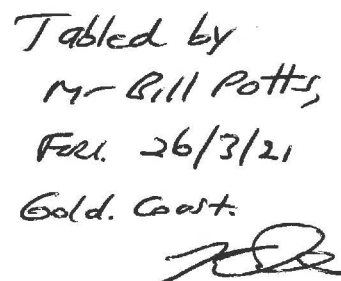 Tabled by
Mr Bill Potts,
26/3/21
Gold. Coast.